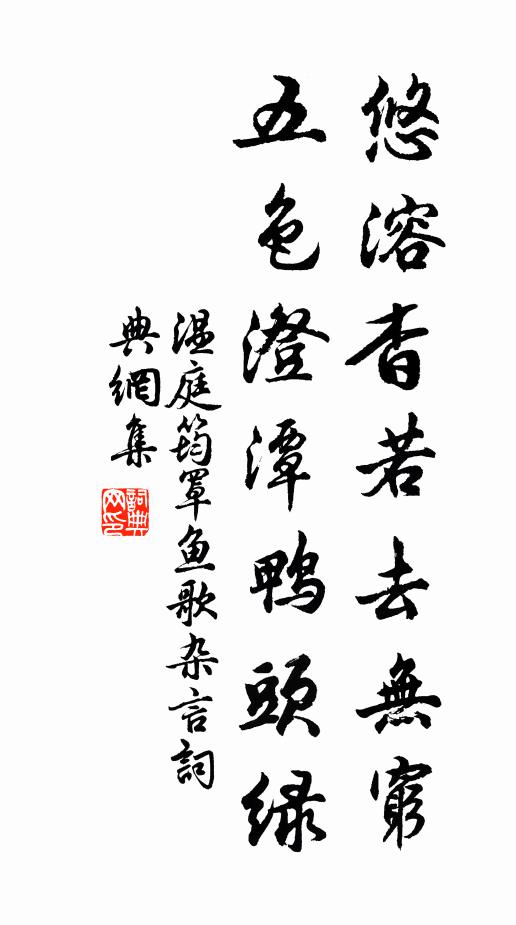 悠溶杳若去無窮
五色澄潭鴨頭绿
温庭筠罩鱼歌杂言詞
典網集
詞典网印